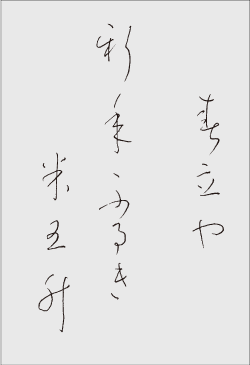 春立や
新年ふるき
米五升